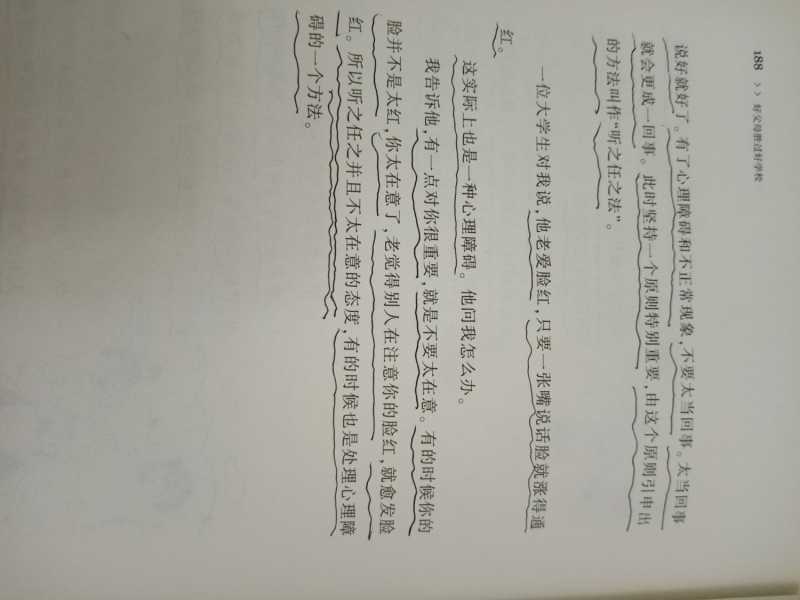 188 >> 好父母胜过好学校
说好就好了。有了心理障碍和不正常现象,不要太当回事。太当回事
就会更成一回事。此时坚持一个原则特别重要,由这个原则引申出
的方法叫作“听之任之法”。
一位大学生对我说,他老爱脸红,只要一张嘴说话脸就涨得通
红。
这实际上也是一种心理障碍。他问我怎么办。
我告诉他,有一点对你很重要,就是不要太在意。有的时候你的
脸并不是太红,你太在意了,老觉得别人在注意你的脸红,就愈发脸
红。所以听之任之并且不太在意的态度,有的时候也是处理心理障
碍的一个方法。